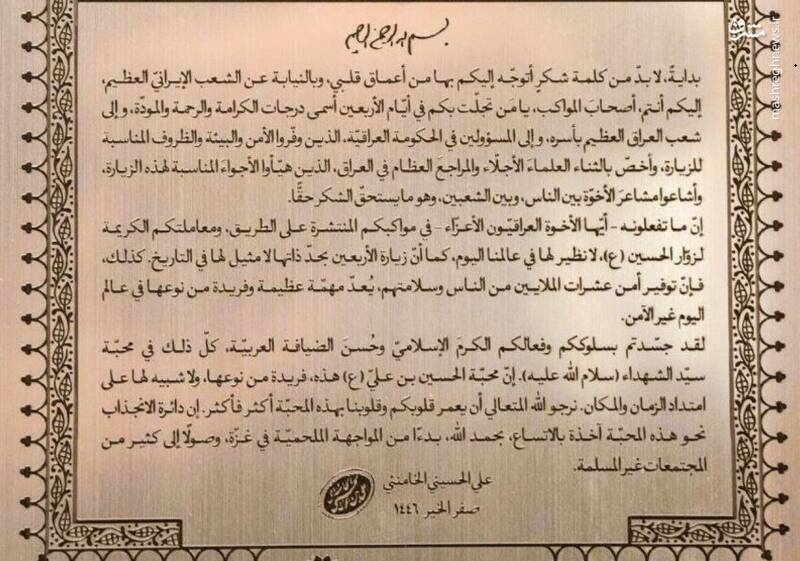 بسم الله الرحمن الرحيم
بدايةً، لا بدّ من كلمة شكرٍ أتوجّه إليكم بها من أعماق قلبي، وبالنيابة عن الشعب الإيرانيّ العظيم،
إليكم أنتم، أصحابَ المواكب، يا مَن تجلت بكم في أيّام الأربعين أسمى درجات الكرامة والرحمة والمودّة، وإلى
شعب العراق العظيم بأسره، وإلى المسؤولين في الحكومة العراقيّة، الذين وفّروا الأمن والبيئة والظروف المناسبة
للزيارة، وأخصّ بالثناء العلماءَ الأجلّاء والمراجعَ العظام في العراق، الذين هيّأوا الأجواءَ المناسبة لهذه الزيارة،
وأشاعوا مشاعرَ الأخوّة بين الناس، وبين الشعبين، وهو ما يستحقّ الشكر حقًّا.
إنّ ما تفعلونه - أيّها الأخوة العراقيّون الأعزّاء - في مواكبكم المنتشرة على الطريق، ومعاملتكم الكريمة
لزوّار الحسين (ع)، لا نظير لها في عالمنا اليوم، كما أنّ زيارة الأربعين بحدّ ذاتها لا مثيل لها في التاريخ. كذلك،
فإنّ توفير أمن عشرات الملايين من الناس وسلامتهم، يُعدّ مهمّة عظيمة وفريدة من نوعها في عالم
اليوم غير الآمن.
لقد جسّدتم بسلوككم وفعالكم الكرمَ الإسلاميّ وحُسنَ الضيافة العربيّة، كلّ ذلك في محبّة
سيّد الشهداء (سلام الله عليه). إنّ محبّة الحسين بن عليّ (ع) هذه، فريدة من نوعها، ولا شبيه لها على
امتداد الزمان والمكان. نرجو الله المتعالي أن يعمر قلوبكم وقلوبنا بهذه المحبّة أكثر فأكثر. إن دائرة الانجذاب
نحو هذه المحبّة آخذة بالاتساع، بحمد الله، بدءًا من المواجهة الملحميّة في غزّة، وصولًا إلى كثير من
المجتمعات غير المسلمة.
علي الحسيني الخامنئي
صفر الخير ١٤٤٦
mashreghnews.ir